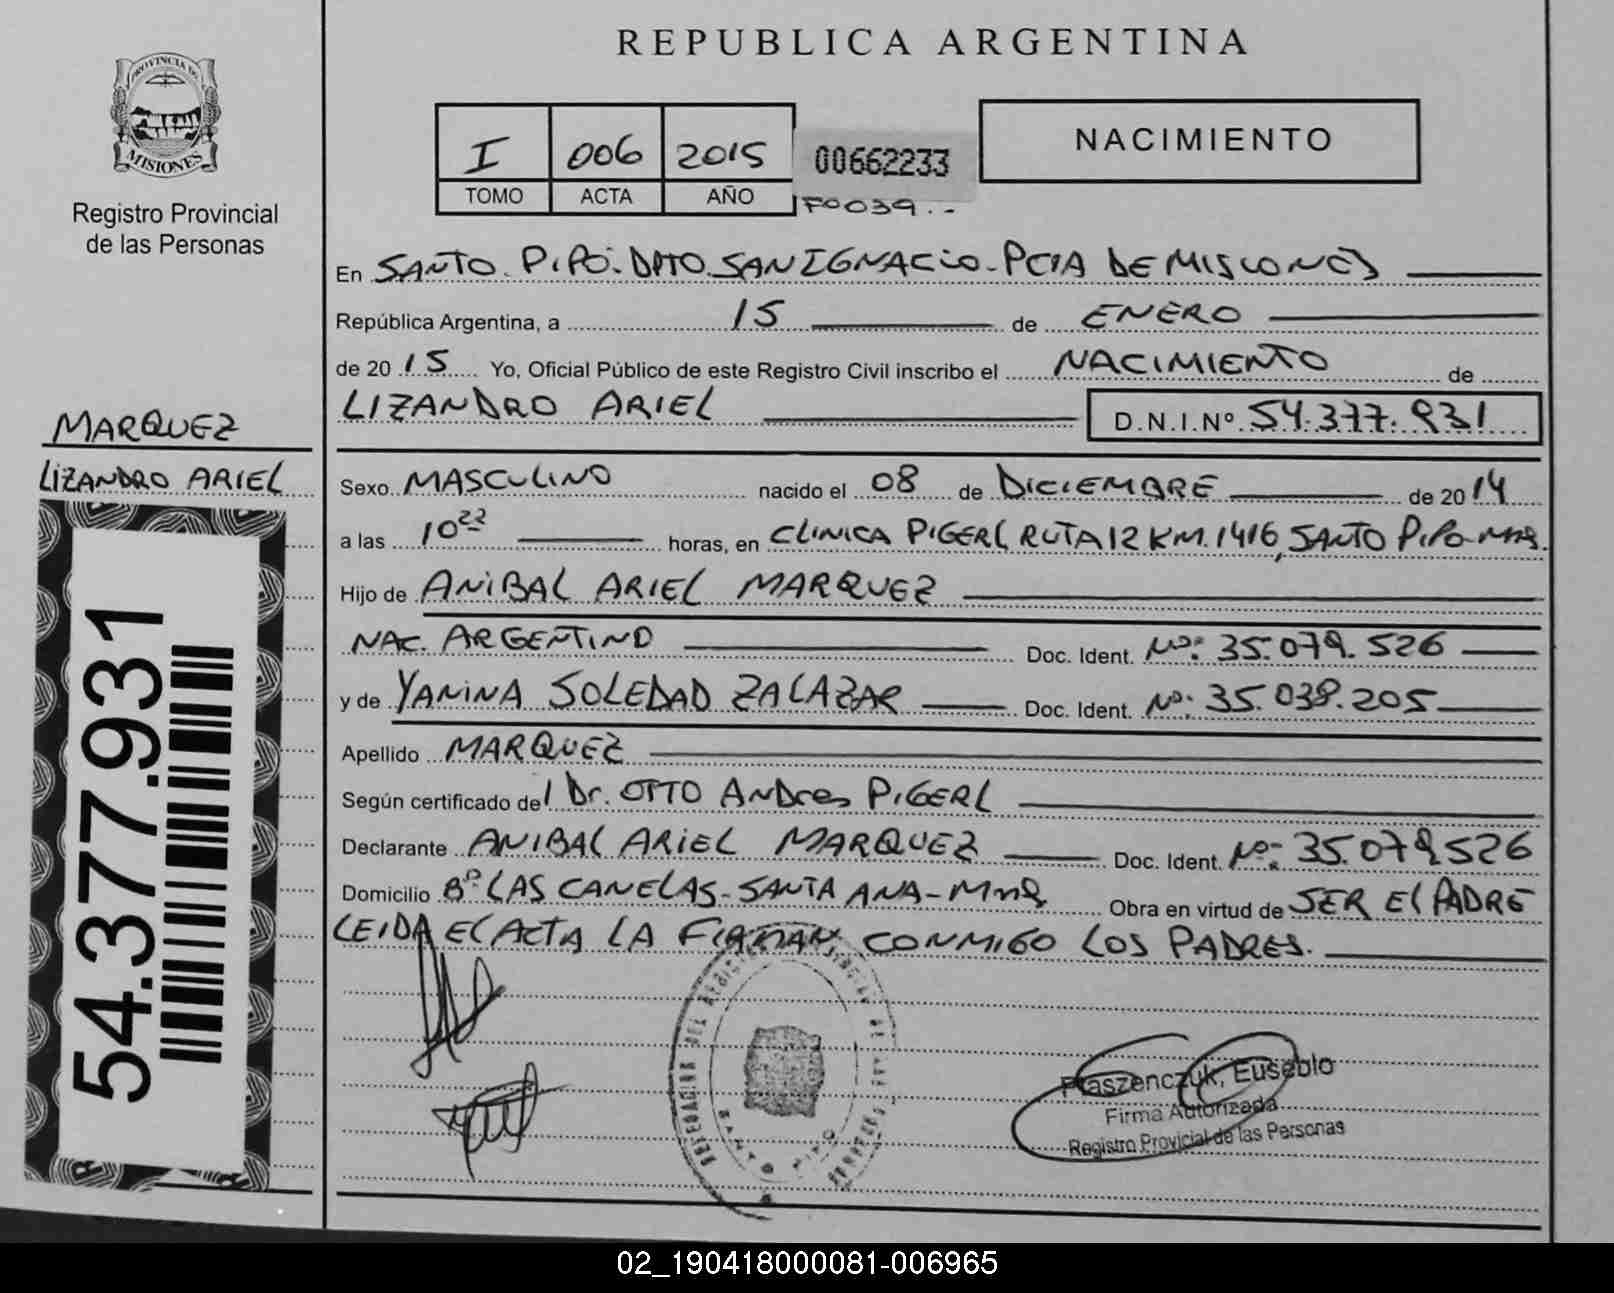 REPUBLICA ARGENTINA
PROVINCIA DE
MISIONES
Registro Provincial
de las Personas
I 006 2015 00662233
TOMO ACTA AÑO
Fº039..-
NACIMIENTO
En SANTO. PIPÓ. DPTO. SAN IGNACIO-PCIA DE MISIONES
República Argentina, a 15 de ENERO
de 2015 Yo, Oficial Público de este Registro Civil inscribo el NACIMIENTO de
LIZANDRO ARIEL D.N.I.Nº. 54.377.931
MARQUEZ
LIZANDRO ARIEL
Sexo MASCULINO nacido el 08 de DICIEMBRE de 2014
a las 10 22 horas, en CLINICA PIGERL RUTA 12 KM. 1416, SANTO PIPO-Mnes.
Hijo de ANIBAL ARIEL MARQUEZ
NAC. ARGENTINO Doc. Ident. Nº: 35.079.526
y de YANINA SOLEDAD ZALAZAR Doc. Ident. Nº: 35.038.205
Apellido MARQUEZ
Según certificado del Dr. OTTO ANDres PIGERL
Declarante ANIBAL ARIEL MARQUEZ Doc. Ident. Nº: 35.079.526
Domicilio Bº LAS CANELAS-SANTA ANA-Mnes Obra en virtud de SER El PADRE
LEIDA EL ACTA LA FIRMAN, CONMIGO LOS PADRES.
54.377.931
DELEGACION DEL REGISTRO
SANTO PIPO
Ptaszenczuk, Eusebio
Firma Autorizada
Registro Provicial de las Personas
02_190418000081-006965